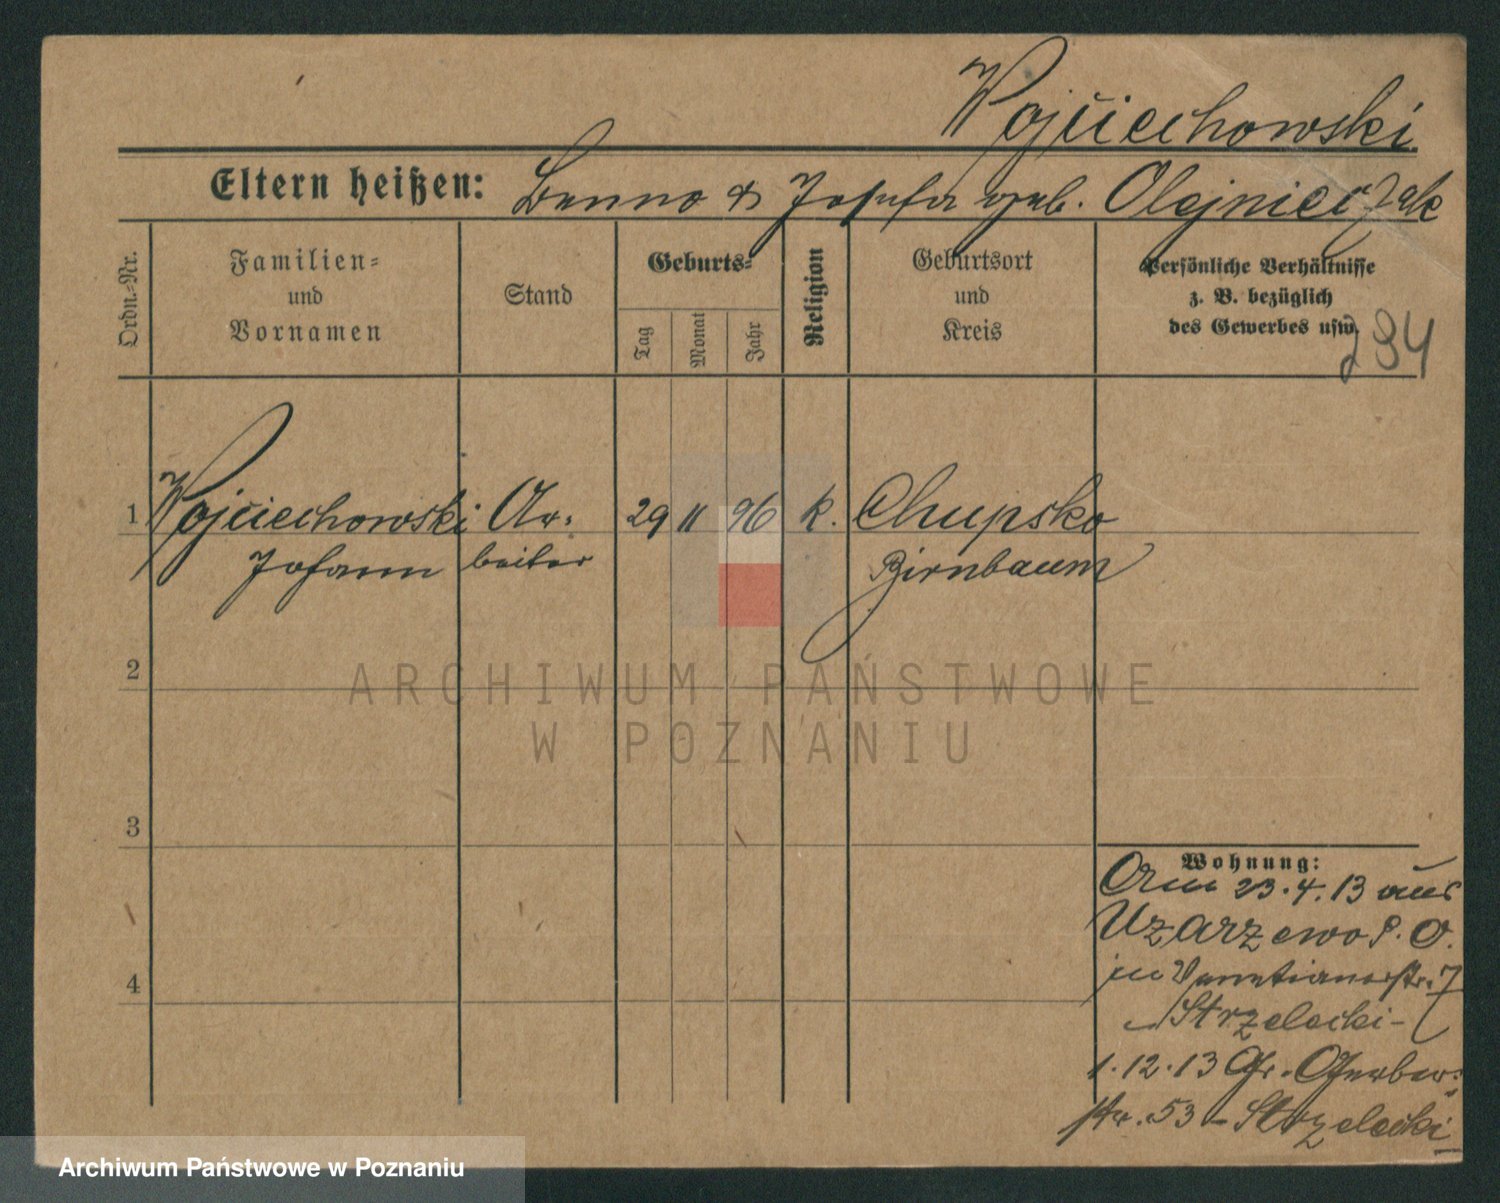 Wojciechowski
Eltern heißen: Benno & Josefa geb. Olejniczak
Ordn.-Nr.
Familien-
und
Vornamen
Stand
Geburts-
Tag
Monat
Jahr
Religion
Geburtsort
und
Kreis
Persönliche Verhältnisse
z. B. bezüglich
des Gewerbes usw.
294
1 Wojciechowski Ar- 29 11 96 k. Chupsko
Johann beiter Birnbaum
2
ARCHIWUM PAŃSTWOWE
W POZNANIU
3
4
Wohnung:
Am 23.4.13 aus
Uzarzewo P. O.
in Venetianerstr. 7
Strzelecki-
1.12.13 Gr. Gerber-
str. 53 - Strzelecki
Archiwum Państwowe w Poznaniu